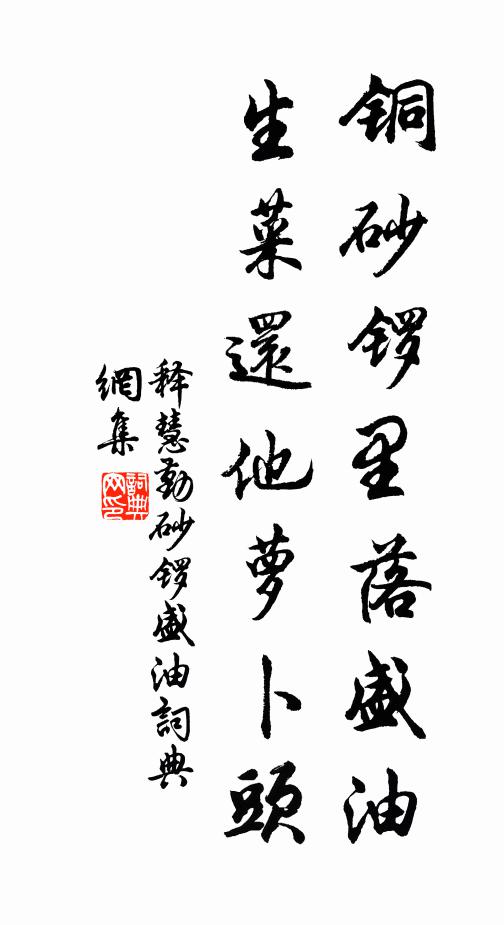 铜砂锣里落盛油
生菜還他萝卜頭
释慧勤砂锣盛油詞典
網集
詞典
网印